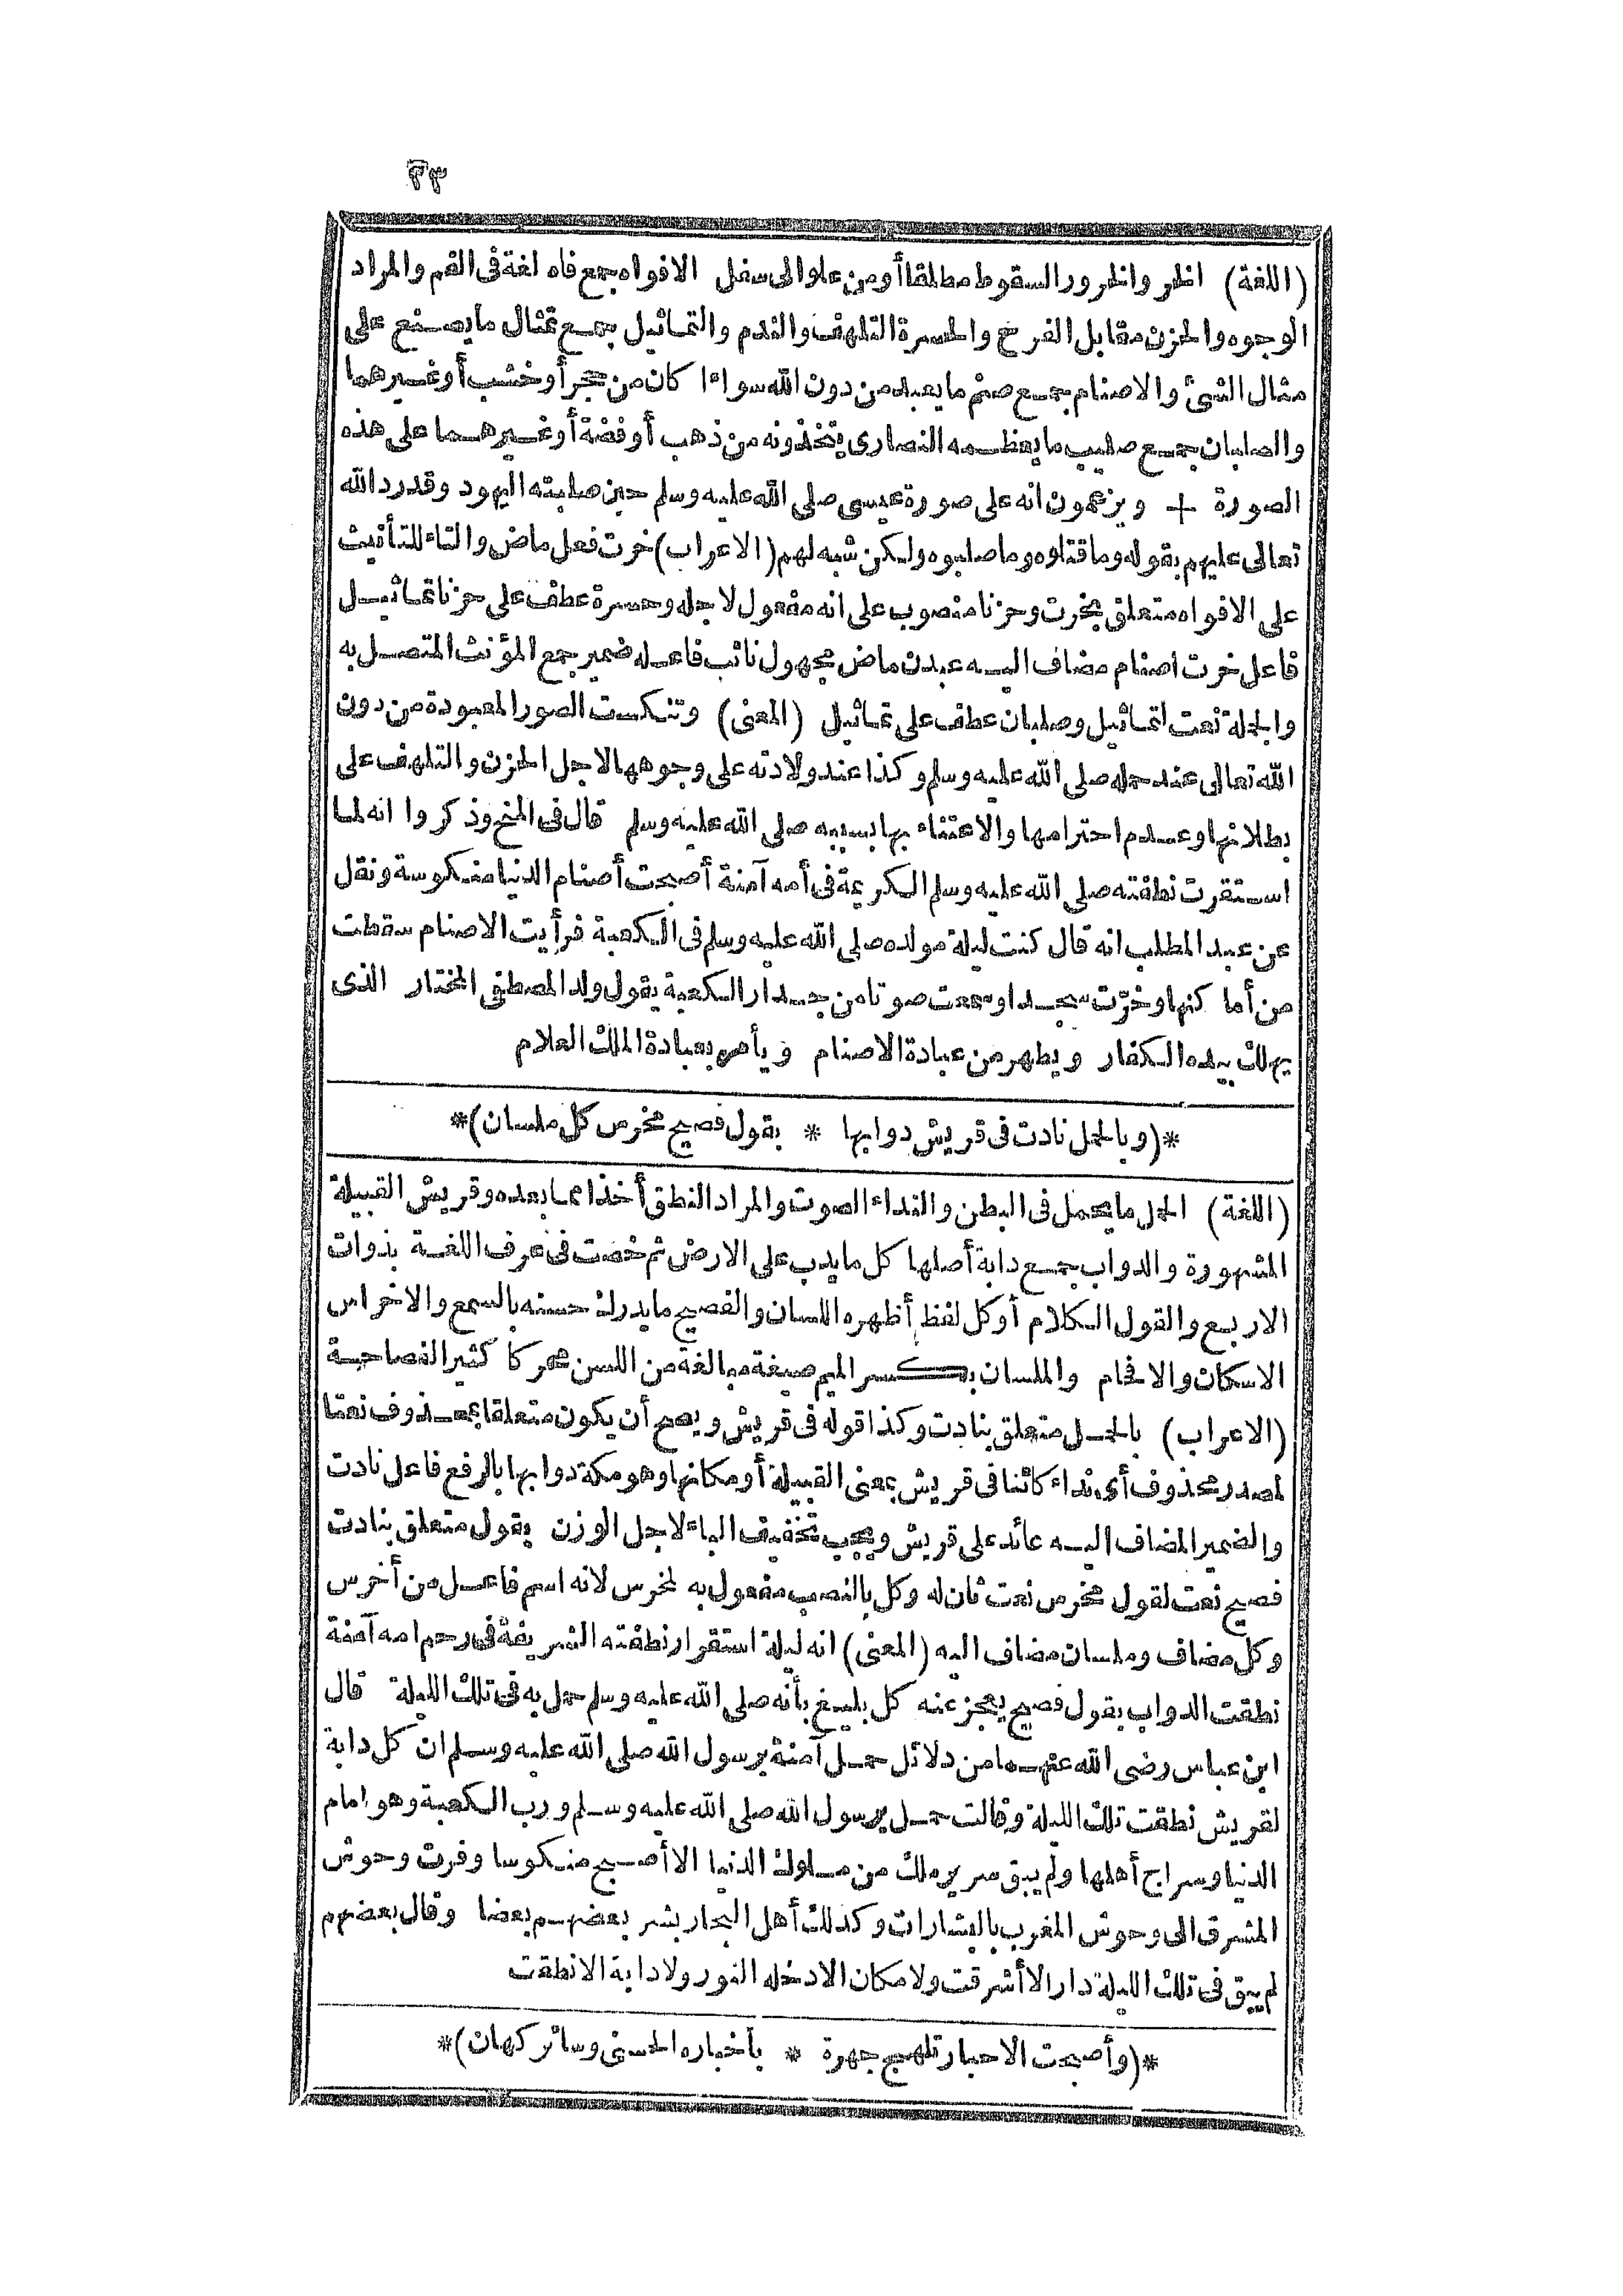 ٣٣
(اللغة) الخر والخرور السقوط مطلقا أو من علو الى سفل الافواه جمع فاه لغة فى الفم والمراد
الوجوه والحزن مقابل الفرح والحسرة التلهف والندم والتماثيل جمع تمثال ما يصنع على
مثال الشئ والاصنام جمع صنم ما يعبد من دون الله سواء كان من حجر أو خشب أو غيرهما
والصلبان جمع صليب ما يعظمه النصارى يتخذونه من ذهب أو فضة أو غيرهما على هذه
الصورة + ويزعمون انه على صورة عيسى صلى الله عليه وسلم حين صلبته اليهود وقد رد الله
تعالى عليهم بقوله وما قتلوه وما صلبوه ولكن شبه لهم (الاعراب) خرت فعل ماض والتاء للتأنيث
على الافواه متعلق بخرت وحزنا منصوب على انه مفعول لاجله وحسرة عطف على حزنا تماثيل
فاعل خرت اصنام مضاف اليه عبدن ماض مجهول نائب فاعله ضمير جمع المؤنث المتصل به
والجملة نعت لتماثيل وصلبان عطف على تماثيل (المعنى) وتنكست الصور المعبودة من دون
الله تعالى عند حمله صلى الله عليه وسلم وكذا عند ولادته على وجوهها لاجل الحزن والتلهف على
بطلانها وعدم احترامها والاعتناء بها بسببه صلى الله عليه وسلم قال فى المنح وذكروا انه لما
استقرت نطفته صلى الله عليه وسلم الكريمة فى أمه آمنة أصبحت أصنام الدنيا منكوسة ونقل
عن عبد المطلب انه قال كنت ليلة مولده صلى الله عليه وسلم فى الكعبة فرأيت الاصنام سقطت
من أماكنها وخرّت سجدا وسمعت صوتا من جدار الكعبة يقول ولد المصطفى المختار الذى
يهلك بيده الكفار ويطهر من عبادة الاصنام ويأمر بعبادة الملك العلام
*(وبالحمل نادت فى قريش دوابها * بقول فصيح مخرس كل ملسان)*
(اللغة) الحمل ما يحمل فى البطن والنداء الصوت والمراد النطق أخذا مما بعده وقريش القبيلة
المشهورة والدواب جمع دابة أصلها كل ما يدب على الارض ثم خصت فى عرف اللغة بذوات
الاربع والقول الكلام أو كل لفظ أظهره اللسان والفصيح ما يدرك حسنه بالسمع والاخراس
الاسكان والافحام والملسان بكسر الميم صيغة مبالغة من اللسن محركا كثير الفصاحة
(الاعراب) بالحمل متعلق بنادت وكذا قوله فى قريش ويصح أن يكون متعلقا بمحذوف نعتا
لمصدر محذوف أى نداء كائنا فى قريش بمعنى القبيلة أو مكانها وهو مكة دوابها بالرفع فاعل نادت
والضمير المضاف اليه عائد على قريش ويجب تخفيف الباء لاجل الوزن بقول متعلق بنادت
فصيح نعت لقول مخرس نعت ثان له وكل بالنصب مفعول به لمخرس لانه اسم فاعل من أخرس
وكل مضاف وملسان مضاف اليه (المعنى) انه ليلة استقرار نطفته الشريفة فى رحم امه آمنة
نطقت الدواب بقول فصيح يعجز عنه كل بليغ بأنه صلى الله عليه وسلم حمل به فى تلك الليلة قال
ابن عباس رضى الله عنهما من دلائل حمل آمنة برسول الله صلى الله عليه وسلم ان كل دابة
لقريش نطقت تلك الليلة وقالت حمل برسول الله صلى الله عليه وسلم ورب الكعبة وهو امام
الدنيا وسراج أهلها ولم يبق سرير ملك من ملوك الدنيا الا أصبح منكوسا وفرت وحوش
المشرق الى وحوش المغرب بالبشارات وكذلك أهل البحار بشر بعضهم بعضا وقال بعضهم
لم يبق فى تلك الليلة دار الا أشرقت ولا مكان الا دخله النور ولا دابة الا نطقت
*(وأصبحت الاحبار تلهج جهرة * بأخباره الحسنى وسائر كهان)*